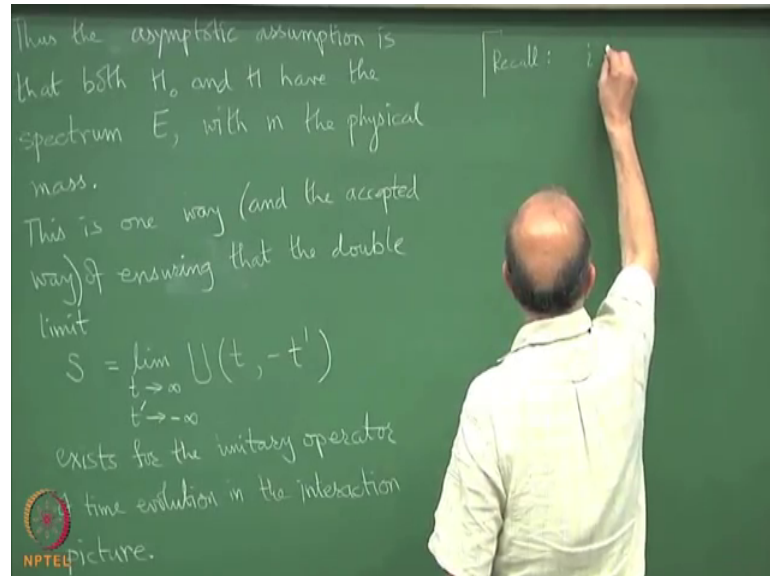 Thus the asymptotic assumption is
that both H₀ and H have the
spectrum E, with m the physical
mass.
This is one way (and the accepted
way) of ensuring that the double
limit
S = lim U(t, -t')
t → ∞
t' → -∞
exists for the unitary operator
of time evolution in the interaction
picture.
Recall: i
NPTEL